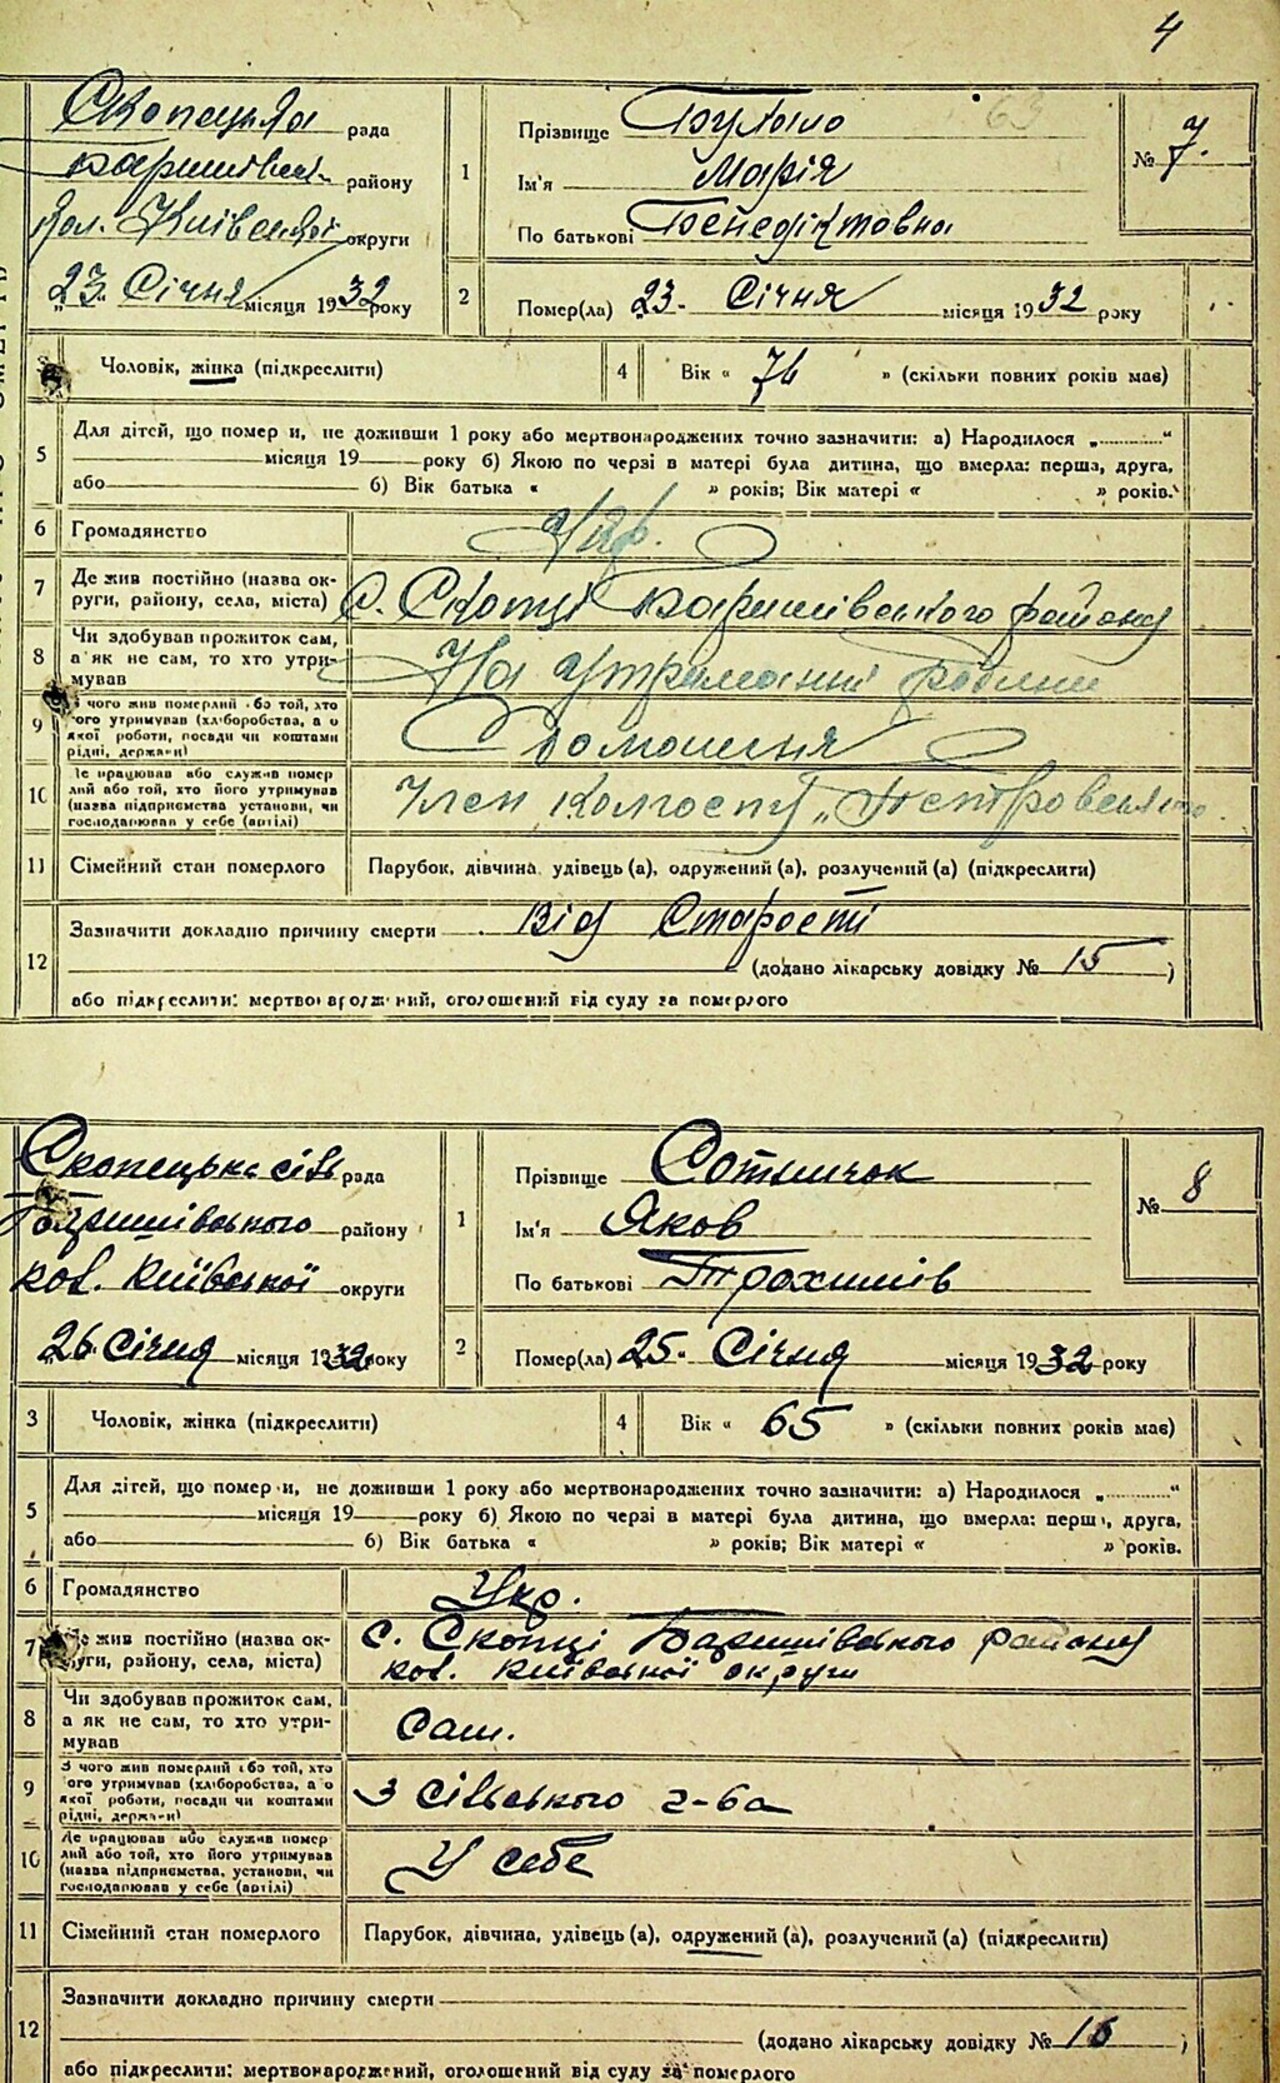 4
Скопецька рада
Баришівськ. району
кол. Київської округи
„23“ Січня місяця 1932 року
1 Прізвище Буtало
Ім'я Марія
По батькові Бенедіктовна
№ 7.
63
2 Помер(ла) „23“ Січня місяця 1932 року
Чоловік, жінка (підкреслити)
4 Вік « 76 » (скільки повних років має)
5 Для дітей, що помер и, не доживши 1 року або мертвонароджених точно зазначити: а) Народилося „ “
місяця 19 року б) Якою по черзі в матері була дитина, що вмерла: перша, друга,
або б) Вік батька « » років; Вік матері « » років.
6 Громадянство Укр.
7 Де жив постійно (назва ок-
руги, району, села, міста) С. Скопці Баришівського району
8 Чи здобував прожиток сам,
а як не сам, то хто утри-
мував На утриманні родини
9 З чого жив померлий або той, хто
ого утримував (хліборобства, а о
якої роботи, посади чи коштами
рідні, держави) Домашня
10 Де працював або служив помер
лий або той, хто його утримував
(назва підприємства установи, чи
господарював у себе (артілі) Член колгоспу „Петровського
11 Сімейний стан померлого Парубок, дівчина, удівець (а), одружений (а), розлучений (а) (підкреслити)
12 Зазначити докладно причину смерти Від Старости
(додано лікарську довідку № 15 )
або підкреслити: мертвонароджений, оголошений від суду за померлого
Скопецька сіль рада
Баришівського району
кол. Київської округи
„26“ Січня місяця 1932 року
1 Прізвище Сотничок
Ім'я Яков
По батькові Трохимів
№ 8
2 Помер(ла) „25“ Січня місяця 1932 року
3 Чоловік, жінка (підкреслити)
4 Вік « 65 » (скільки повних років має)
5 Для дітей, що помер и, не доживши 1 року або мертвонароджених точно зазначити: а) Народилося „ “
місяця 19 року б) Якою по черзі в матері була дитина, що вмерла: перша, друга,
або б) Вік батька « » років; Вік матері « » років.
6 Громадянство Укр.
7 Де жив постійно (назва ок-
руги, району, села, міста) с. Скопці Баришівського району
кол. Київської округи
8 Чи здобував прожиток сам,
а як не сам, то хто утри-
мував Сам.
9 З чого жив померлий або той, хто
ого утримував (хліборобства, а о
якої роботи, посади чи коштами
рідні, держави) З сільського г-ва
10 Де працював або служив помер
лий або той, хто його утримував
(назва підприємства, установи, чи
господарював у себе (артілі) У себе
11 Сімейний стан померлого Парубок, дівчина, удівець (а), одружений (а), розлучений (а) (підкреслити)
12 Зазначити докладно причину смерти
(додано лікарську довідку № 16 )
або підкреслити: мертвонароджений, оголошений від суду за померлого